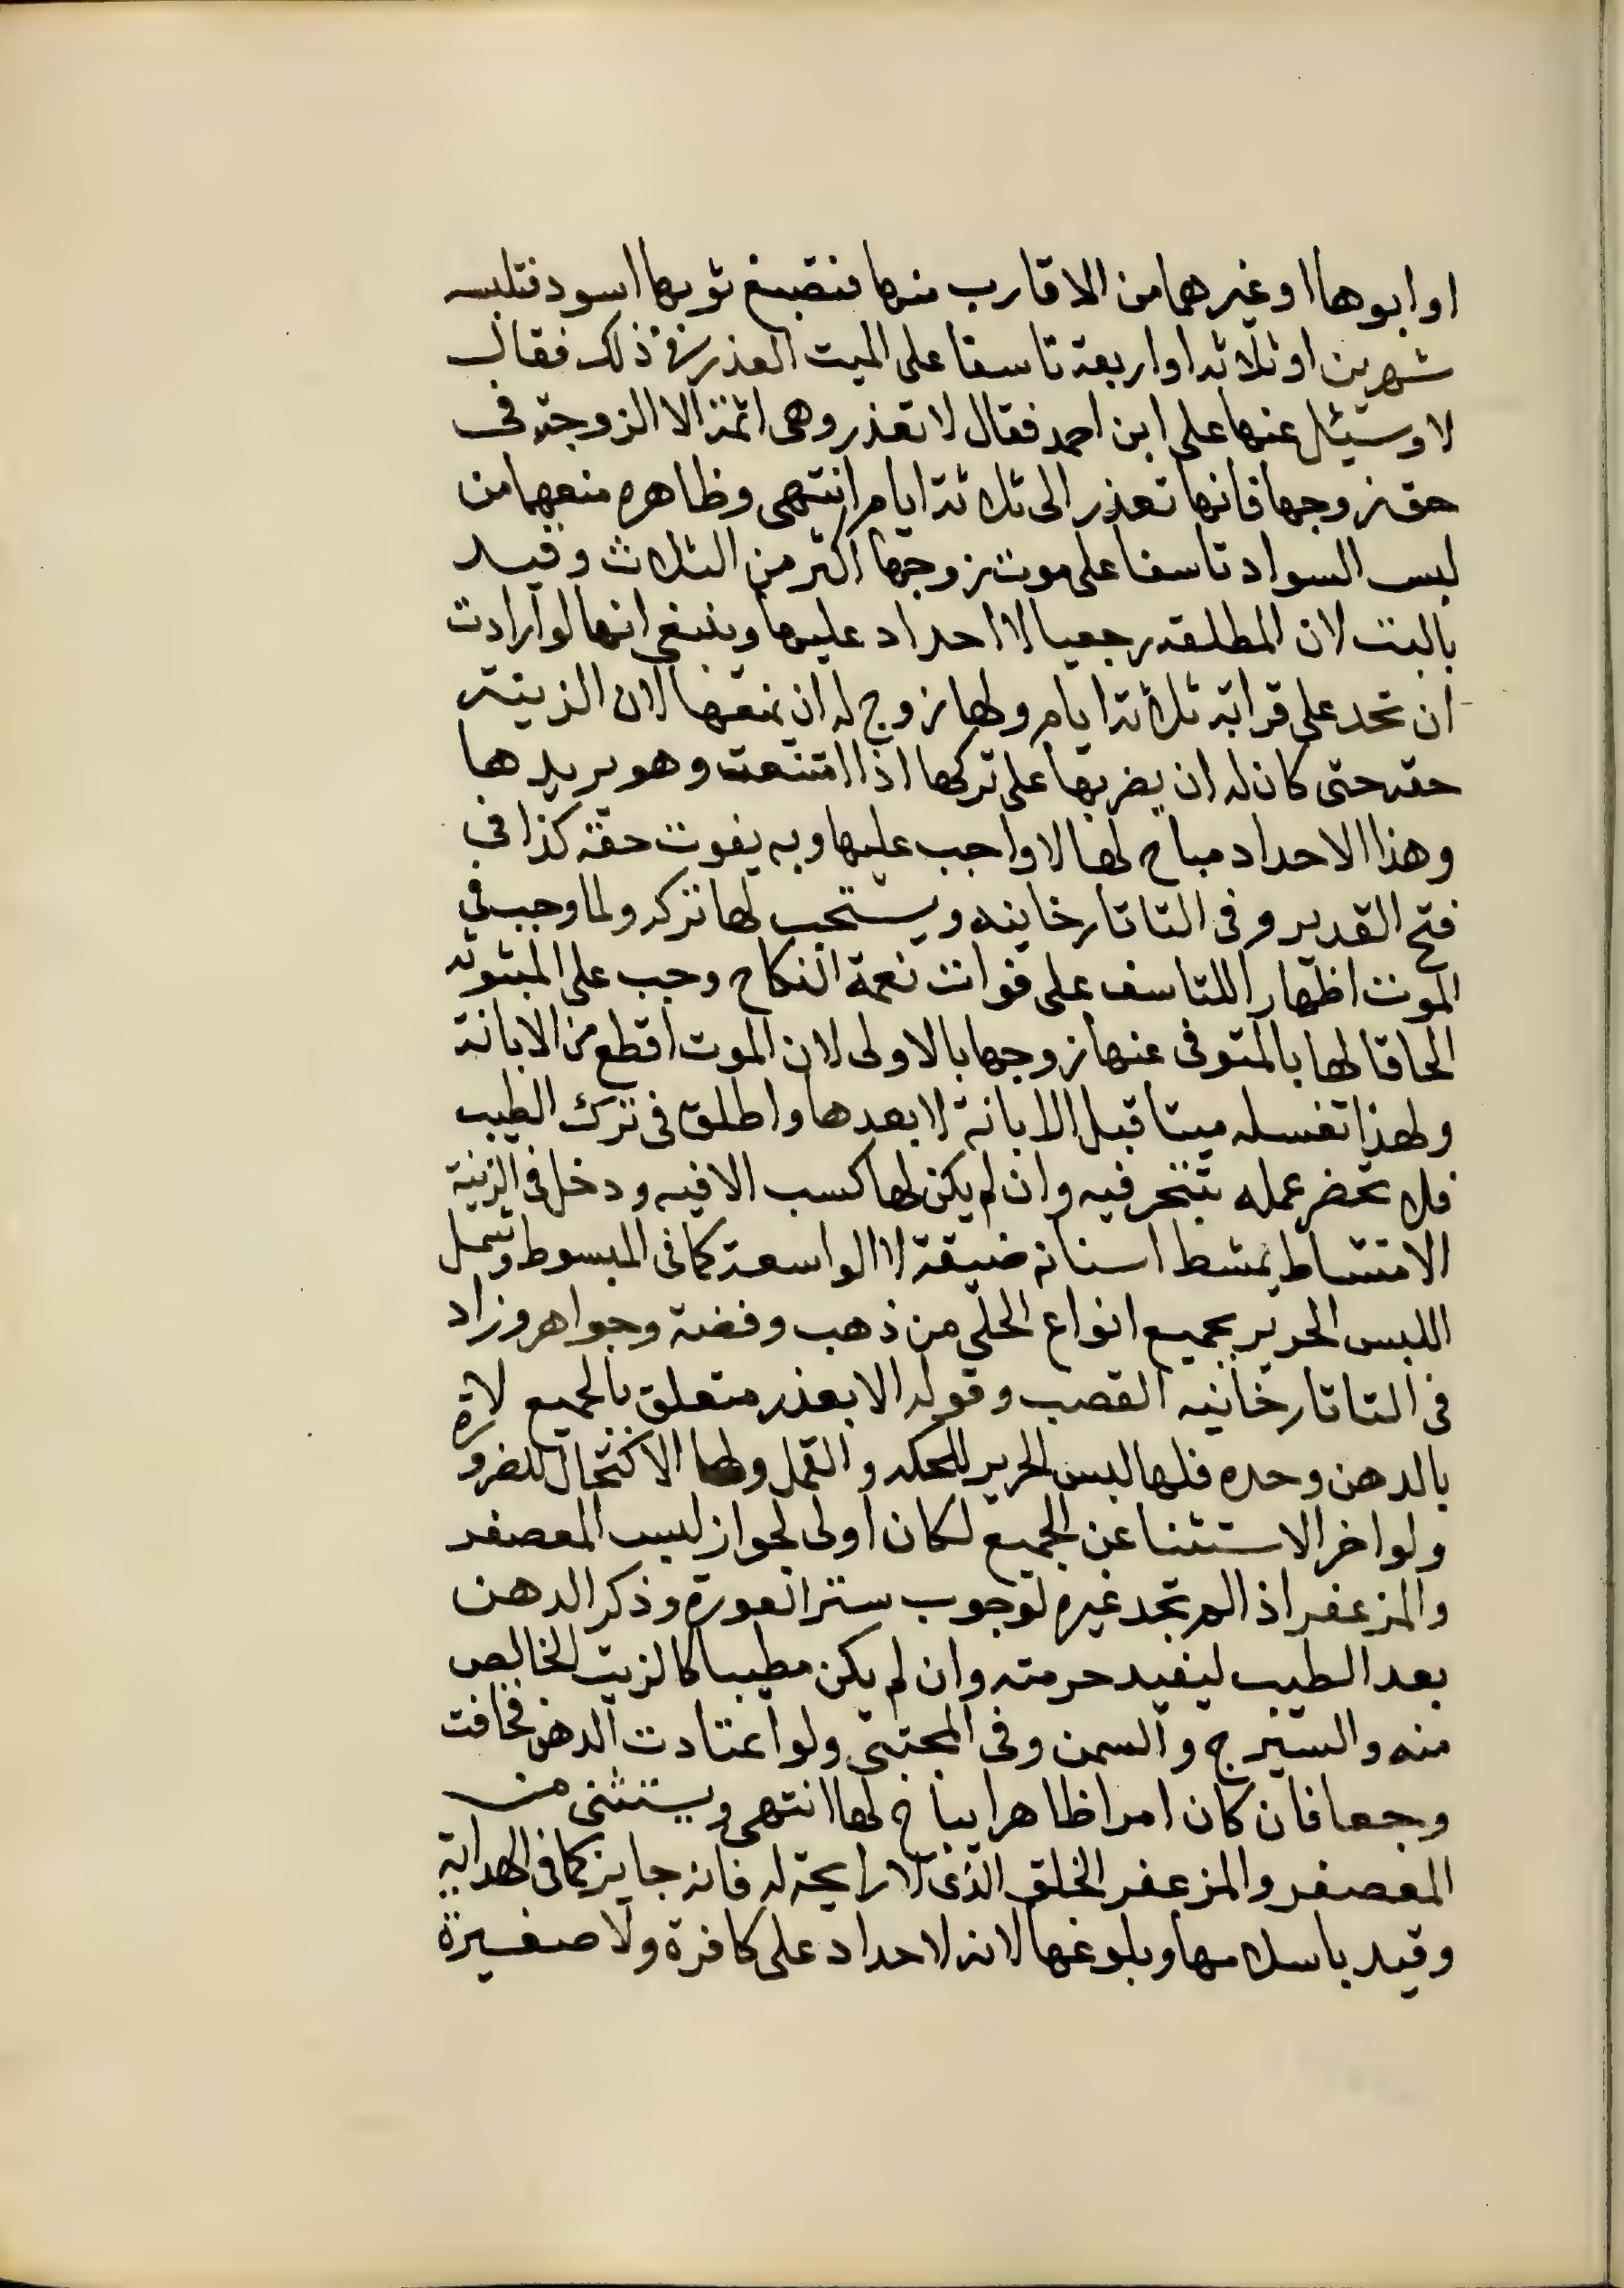 او ابوها او غيرهما من الاقارب منها فتصبغ ثوبها اسود فتلبسه
شهرين او ثلاثه او اربعة تاسفا على الميت العذر في ذلك فقال
لا وسيئل عنها على ابن احمد فقال لا تعذر وهى اثمة الا الزوجة فى
حق زوجها فانها تعذر الى ثلاثة ايام انتهى وظاهره منعهما من
لبس السواد تاسفا على موت زوجها اكثر من الثلاث وقيد
بالبت لان المطلقه رجعيا لا احداد عليها وينبغى انها لو ارادت
ان تحد على قرابة ثلاثة ايام ولها زوج له ان يمنعها لان الزينة
حقه حتى كان له ان يضربها على تركها اذا امتنعت وهو يريدها
وهذا الاحداد مباح لها لا واجب عليها وبه يفوت حقه كذا فى
فتح القدير وفى التاتارخانيه ويستحب لها تركه ولما وجب فى
الموت اظهارا للتاسف على فوات نعمة النكاح وجب على المبتوته
الحاقا لها بالمتوفى عنها زوجها بالاولى لان الموت اقطع من الابانة
ولهذا تغسله ميتا قبل الابانة لا بعدها واطلق فى ترك الطيب
فلا تحضر عمله تتجر فيه وان لم يكن لها كسب الا فيه ودخل فى الزينة
الامتشاط بمشط اسنانه ضيقة لا الواسعة كما فى المبسوط وشمل
اللبس الحرير بجميع انواع الحلى من ذهب وفضة وجواهر وزاد
فى التاتارخانيه القصب وقوله الا بعذر متعلق بالجميع لا
بالدهن وحده فلها لبس الحرير للحكه والقمل ولها الاكتحال للضرورة
ولو اخر الاستثنا عن الجميع لكان اولى لجواز لبس المعصفر
والمزعفر اذا لم تجد غيره لوجوب ستر العورة وذكر الدهن
بعد الطيب ليفيد حرمته وان لم يكن مطيبا كالزيت الخالص
منه والشيرج والسمن وفى المجتبى ولو اعتادت الدهن فخافت
وجعا فان كان امرا ظاهرا يباح لها انتهى ويستثنى من
المعصفر والمزعفر الخلق الذى لا رايحة له فانه جايز كما فى الهداية
وقيد باسلامها وبلوغها لانه لا حداد على كافرة ولا صغيرة